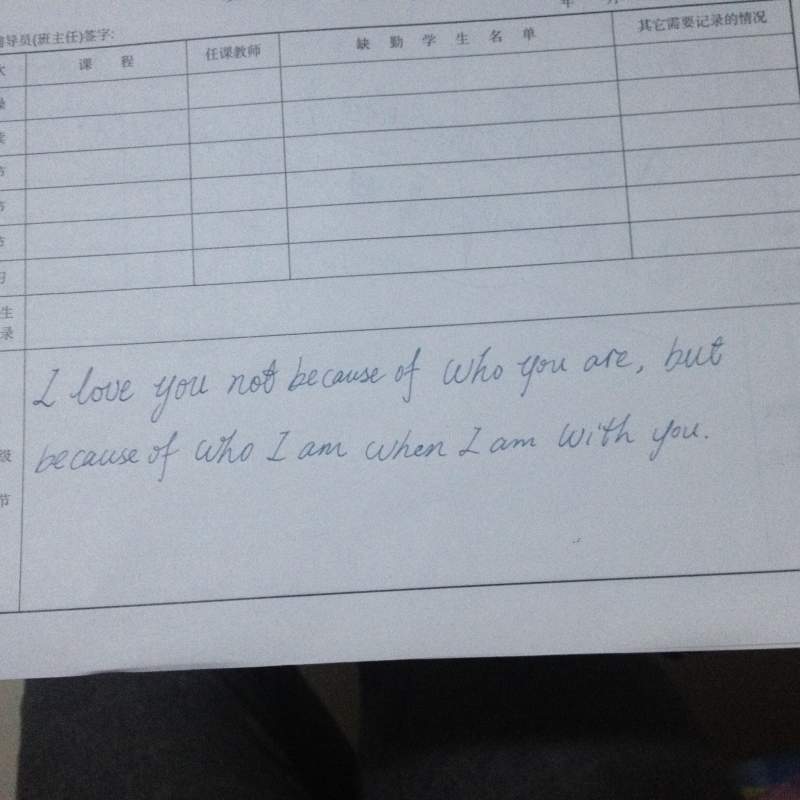 导员(班主任)签字:
年 月
课 程 任课教师 缺 勤 学 生 名 单 其它需要记录的情况
节
节
节
习
生
录
I love you not because of who you are, but
级
because of who I am when I am with you.
节